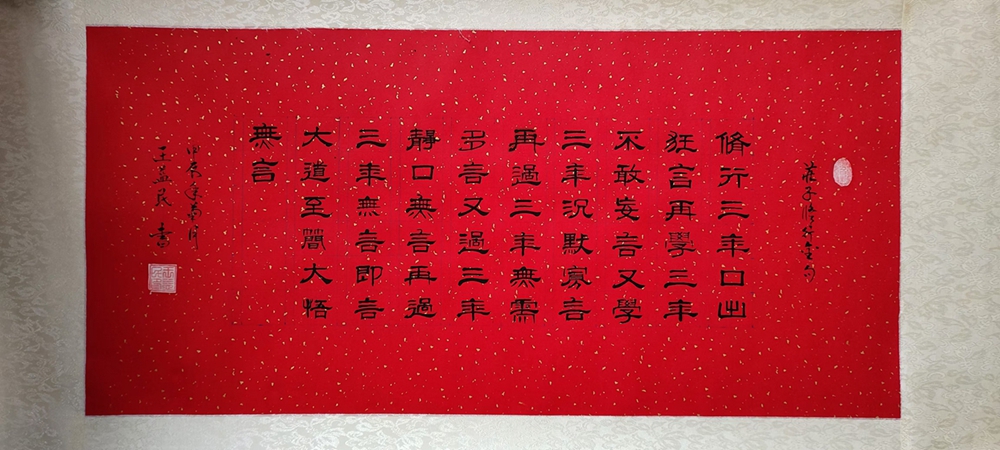 莊子修行金句
脩行三年口出
狂言再學三年
不敢妄言又學
三年沉默寡言
再過三年無需
多言又過三年
靜口無言再過
三年無言即言
大道至簡大悟
無言
甲辰年月
王益民書